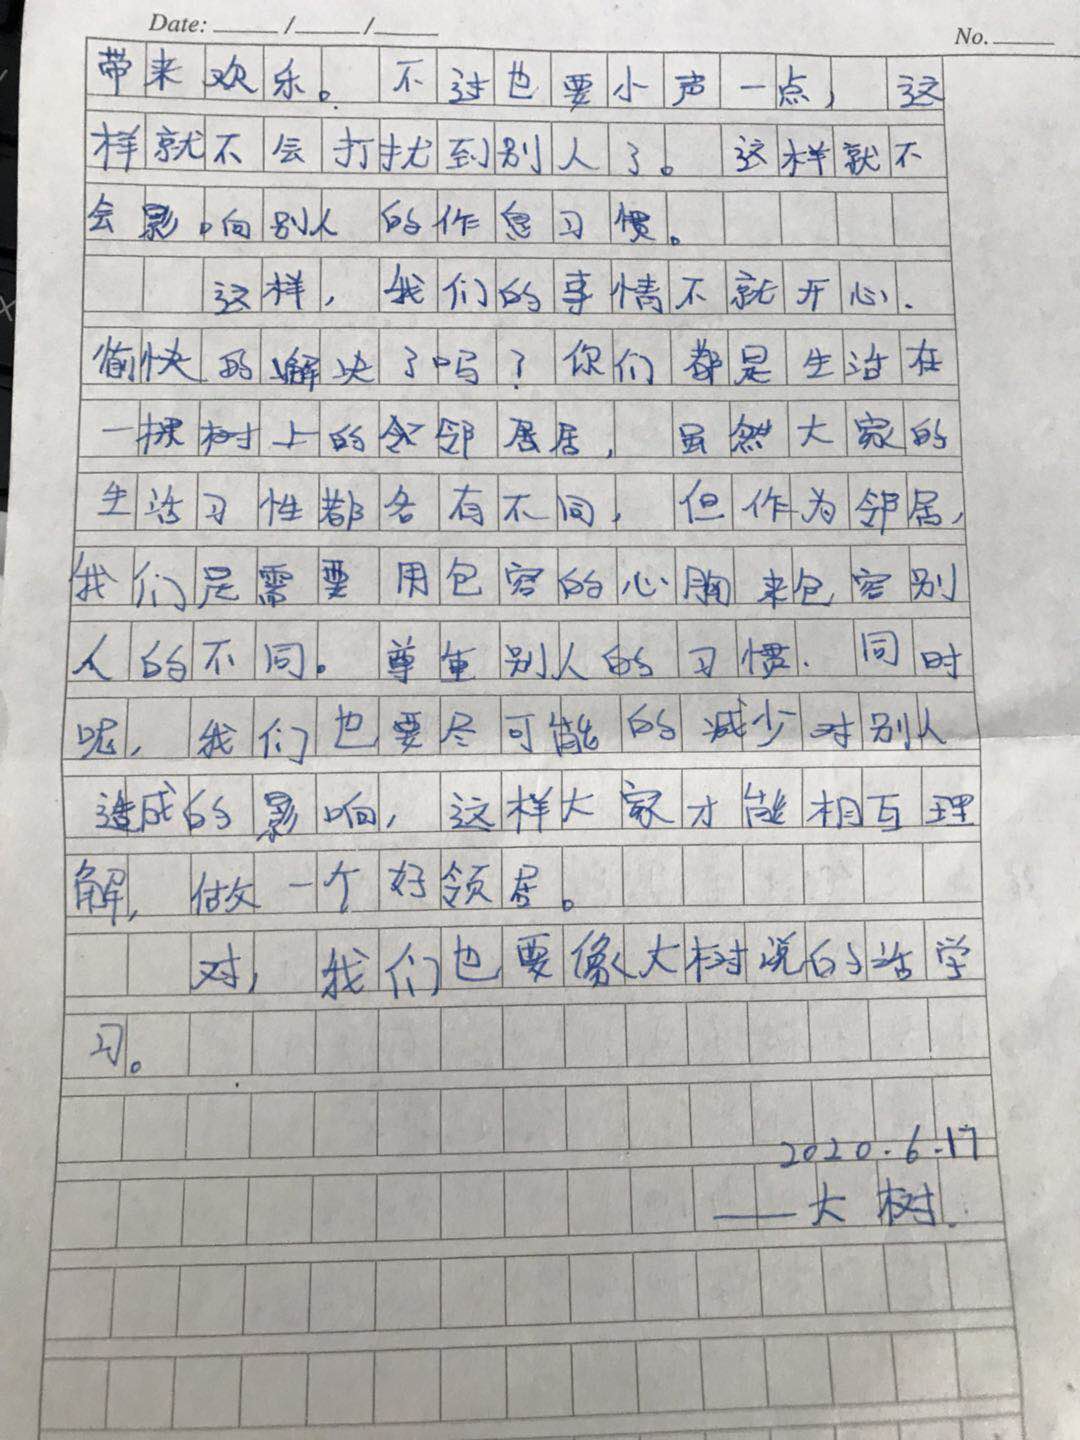 Date: ____/____/____
No. ____
带来欢乐。不过也要小声一点，这
样就不会打扰到别人了。这样就不
会影响别人的作息习惯。
这样，我们的事情不就开心、
愉快的解决了吗？你们都是生活在
一棵树上的邻居，虽然大家的
生活习性都各有不同，但作为邻居，
我们是需要用包容的心胸来包容别
人的不同。尊重别人的习惯.同时
呢，我们也要尽可能的减少对别人
造成的影响，这样大家才能相互理
解，做一个好领居。
对，我们也要像大树说的话学
习。
2020.6.17
——大树.